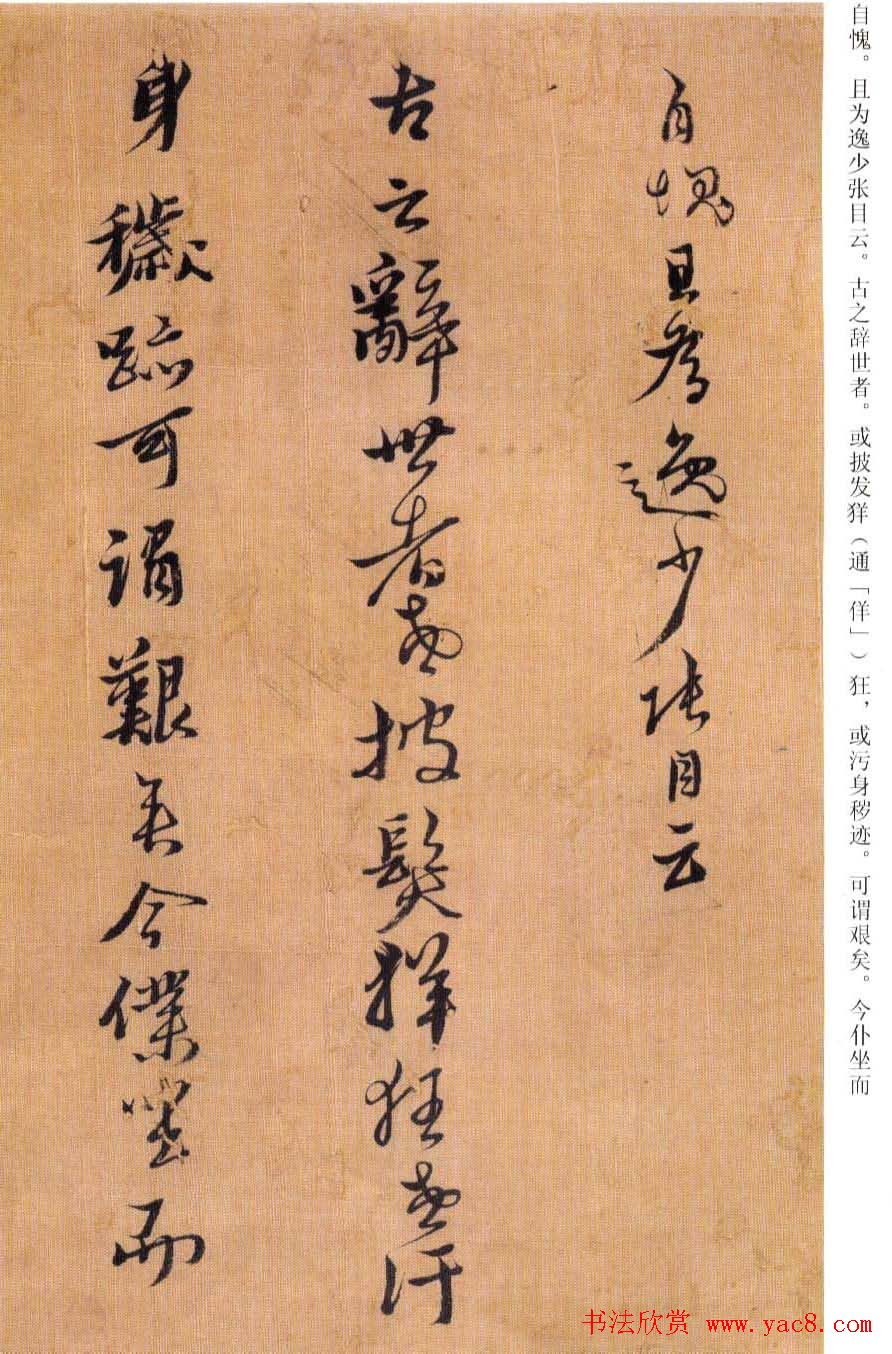 自愧。且为逸少张目云。古之辞世者。或披发佯（通「佯」）狂，或污身秽迹。可谓艰矣。今仆坐而
自愧且为逸少张目云
古之辭世者或披髮徉狂或汙
身穢跡可謂艱矣今僕坐而
书法欣赏 www.yac8.com